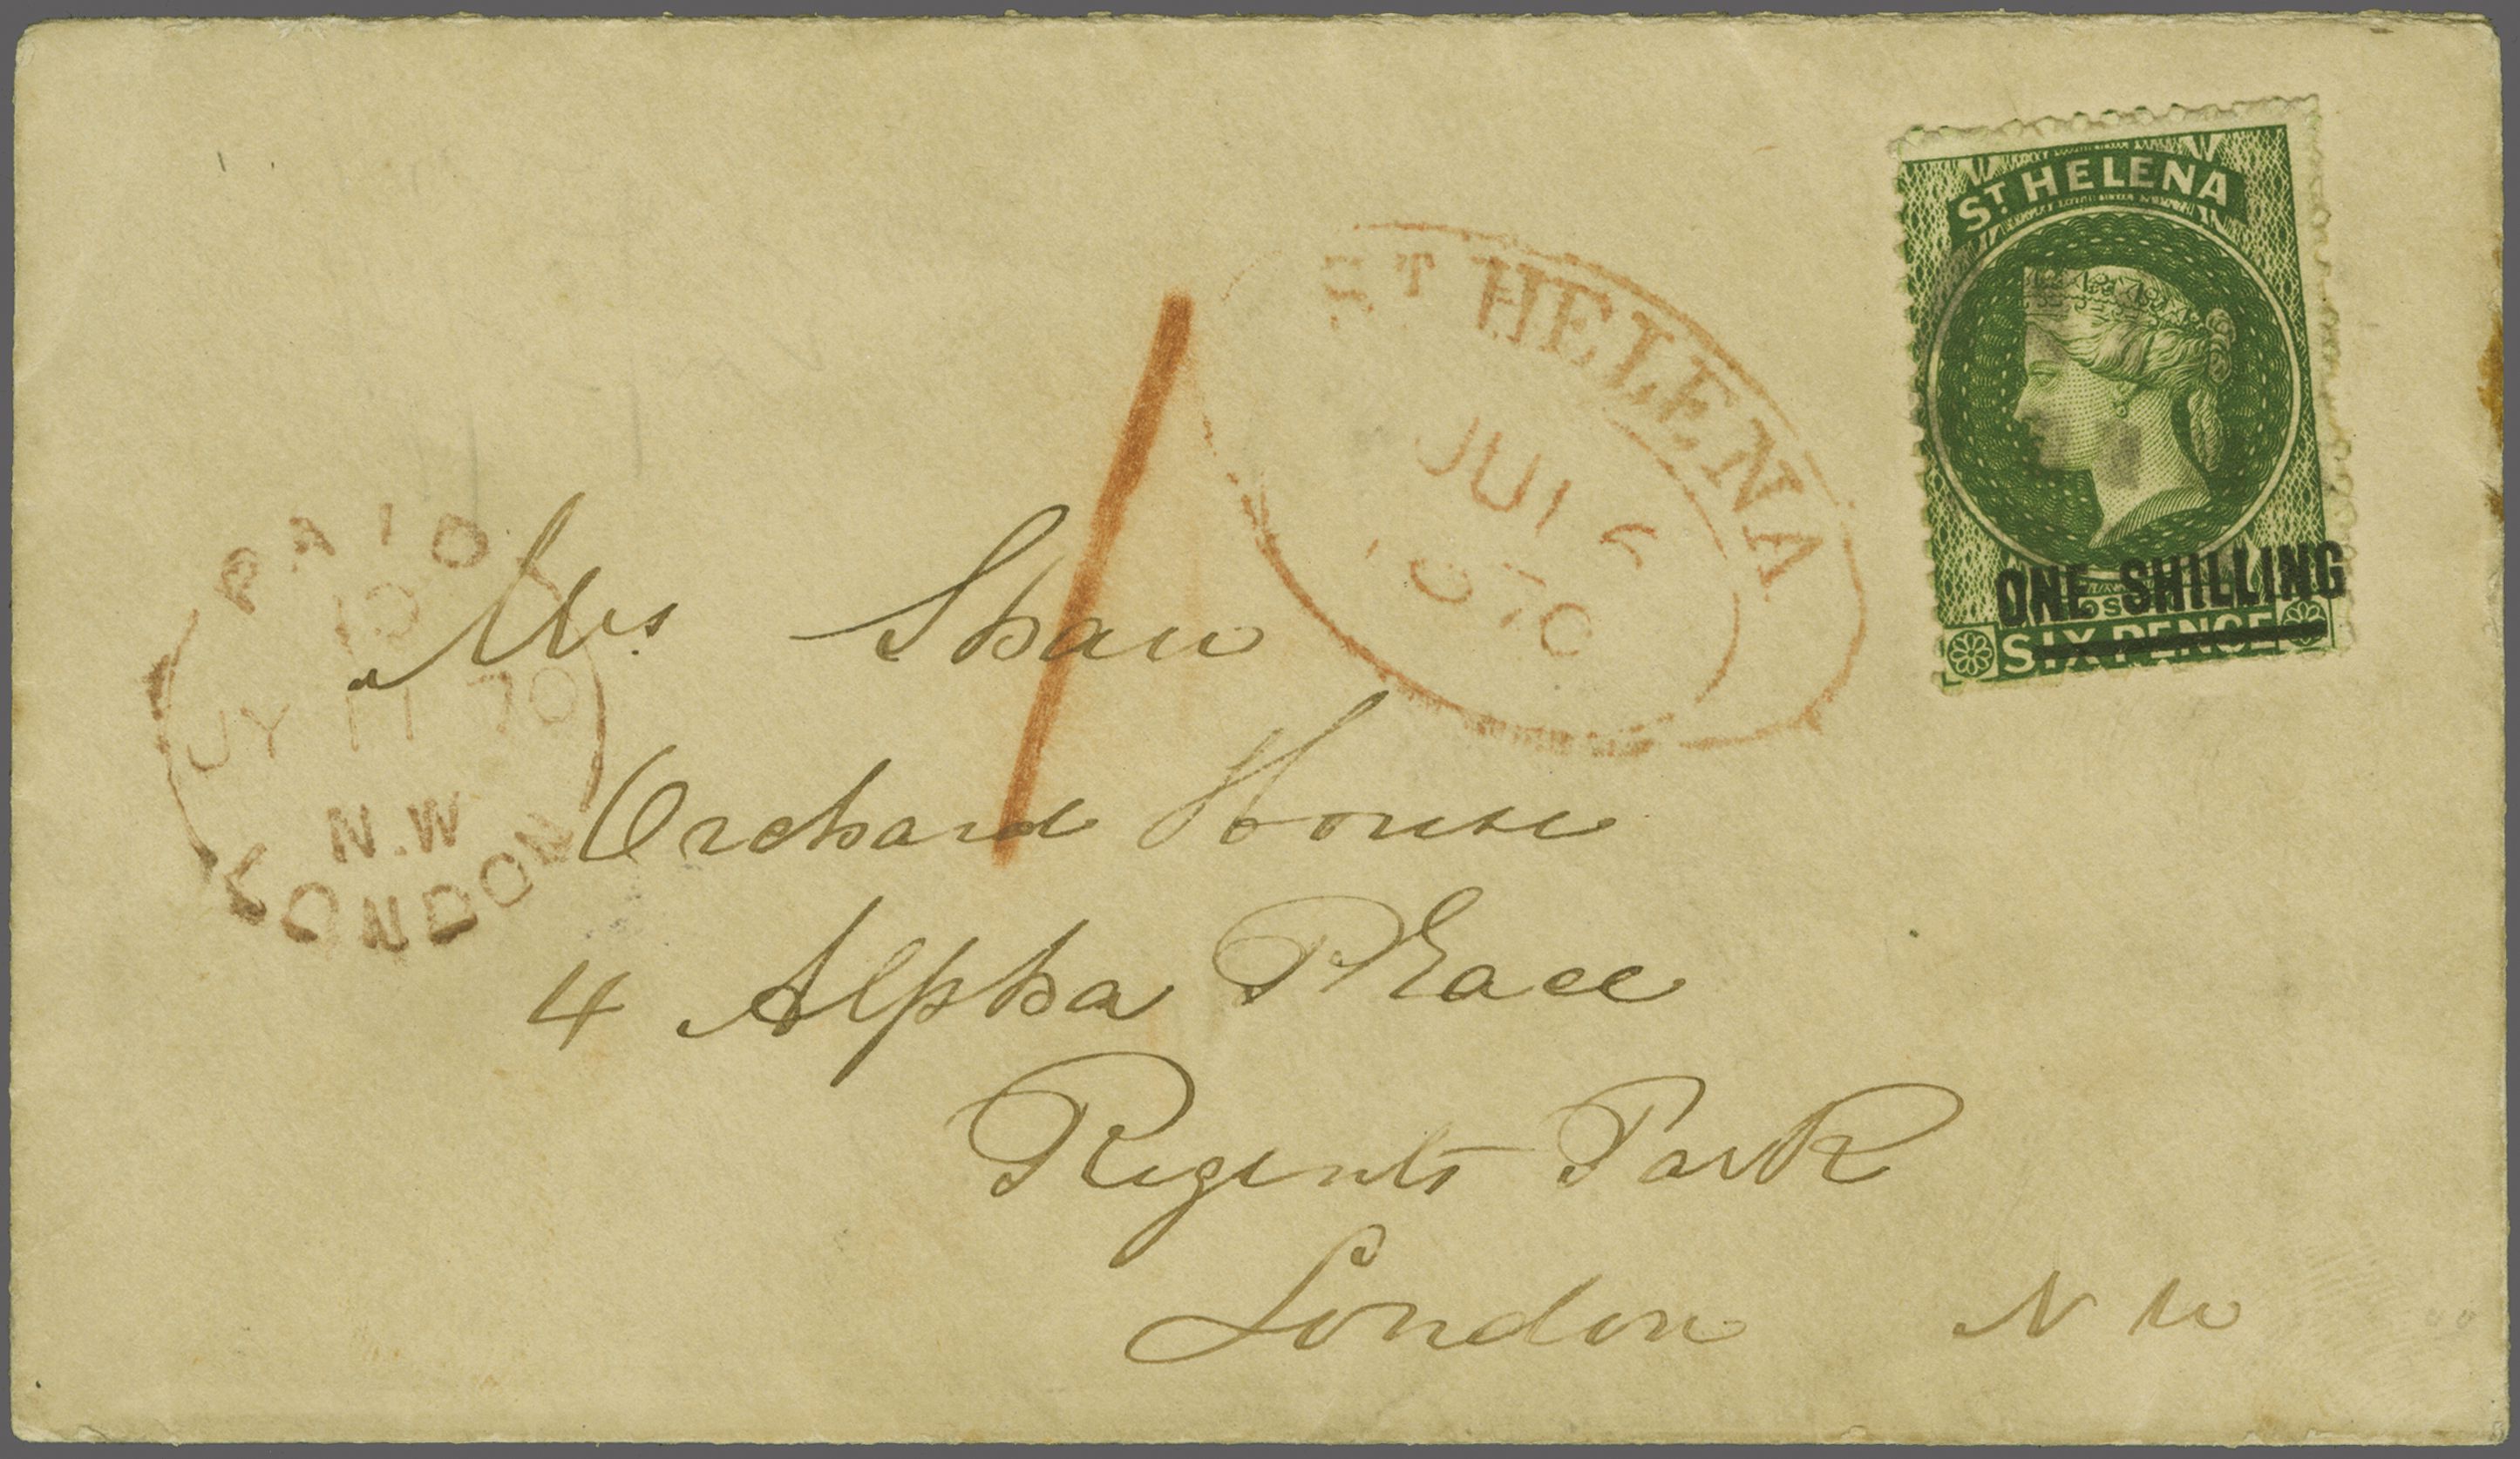 ST HELENA
ONE SHILLING
SIX PENCE
ST HELENA
1870
PAID
JY 11 70
N.W
LONDON
Mrs Shaw
Orchard House
4 Alpha Place
Regents Park
London N W